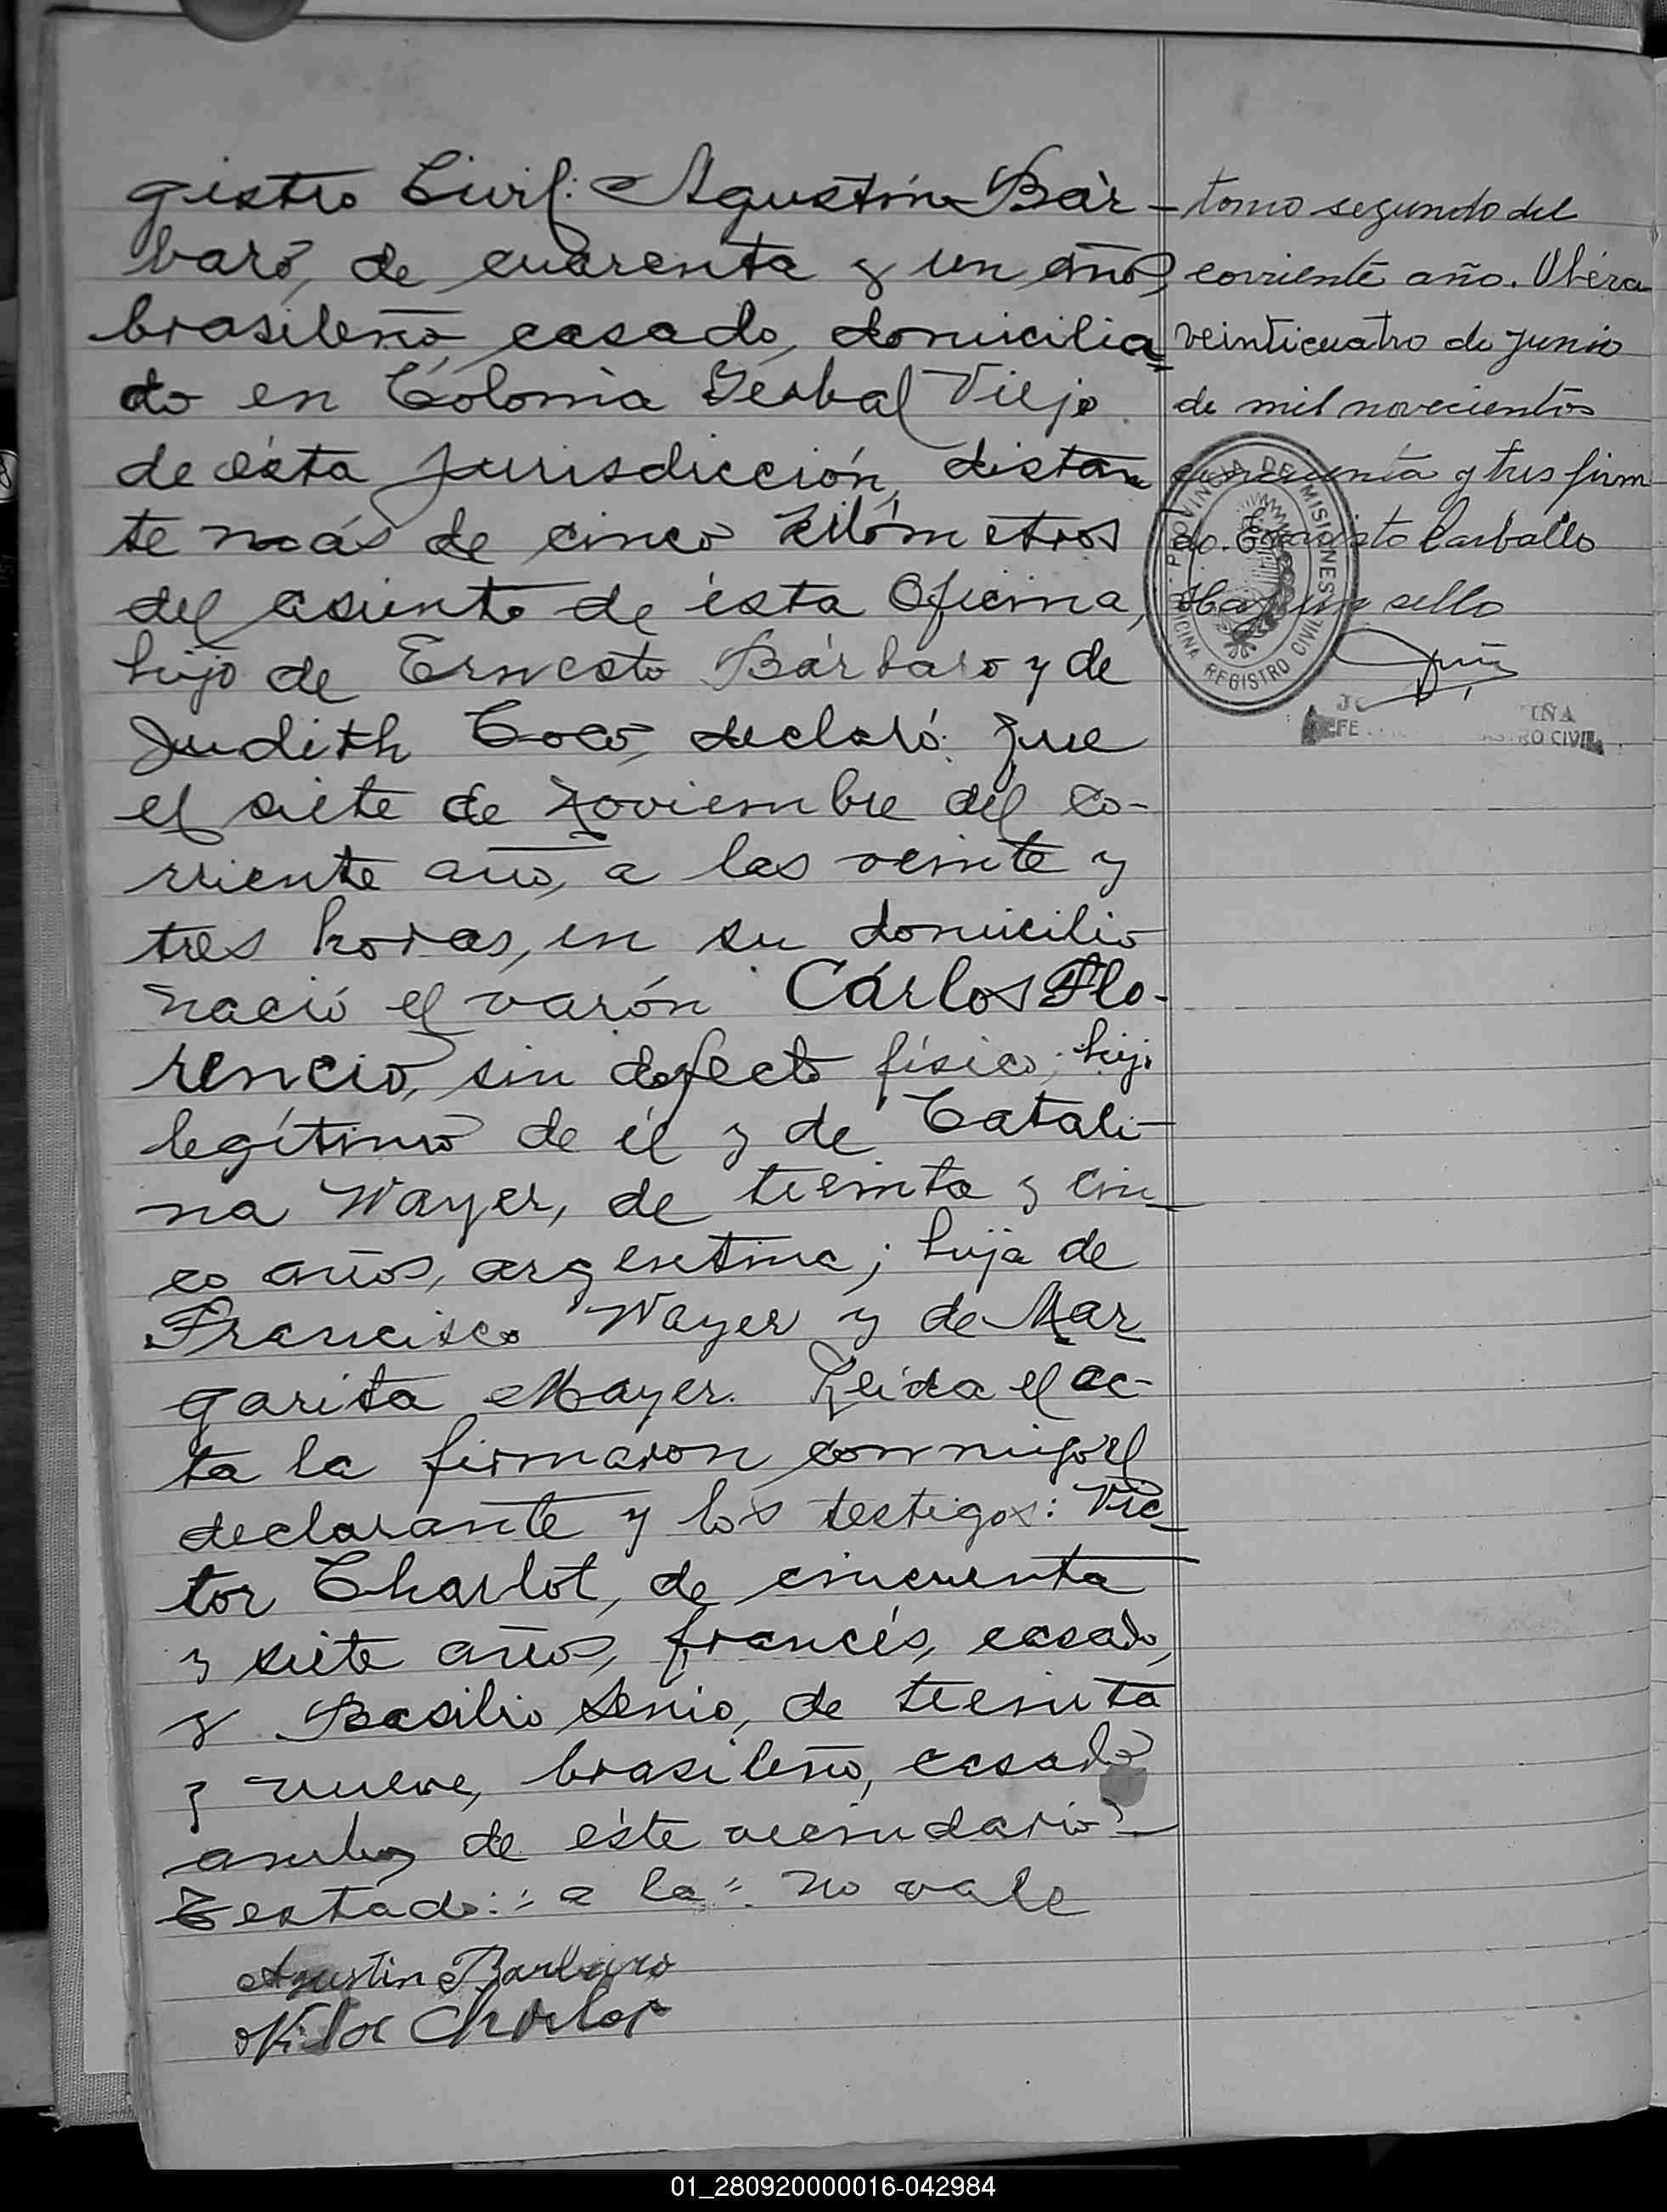 gistro Civil: Agustín Bár-
baro, de cuarenta y un años
brasileño, casado, domicilia-
do en Colonia Yerbal Viejo
de ésta Jurisdicción, distan
te más de cinco kilómetros
del asiento de ésta Oficina,
hijo de Ernesto Bárbaro y de
Judith Coco, declaró: Que
el siete de Noviembre del co-
rriente año, a las veinte y
tres horas, en su domicilio
nació el varón Cárlos Flo-
rencio, sin defecto físico; hijo
legítimo de él y de Catali-
na Wayer, de treinta y cin-
co años, argentina; hija de
Francisco Wayer y de Mar
garita Mayer. Leída el ac-
ta la firmaron conmigo el
declarante y los testigos: Víc-
tor Charlot, de cincuenta
y siete años, francés, casado,
y Basilio Senio, de treinta
y nueve, brasileño, casado
ambos de éste vecindario.-
Testado: "a la": no vale
Agustin Barbaro
Charlot
tomo segundo del
corriente año. Oberá
veinticuatro de junio
de mil novecientos
cincuenta y tres firm
do. Evaristo Carballo
Hay un sello
PROVINCIA DE MISIONES
OFICINA REGISTRO CIVIL
IÑA
JEFE CIVIL
01_280920000016-042984